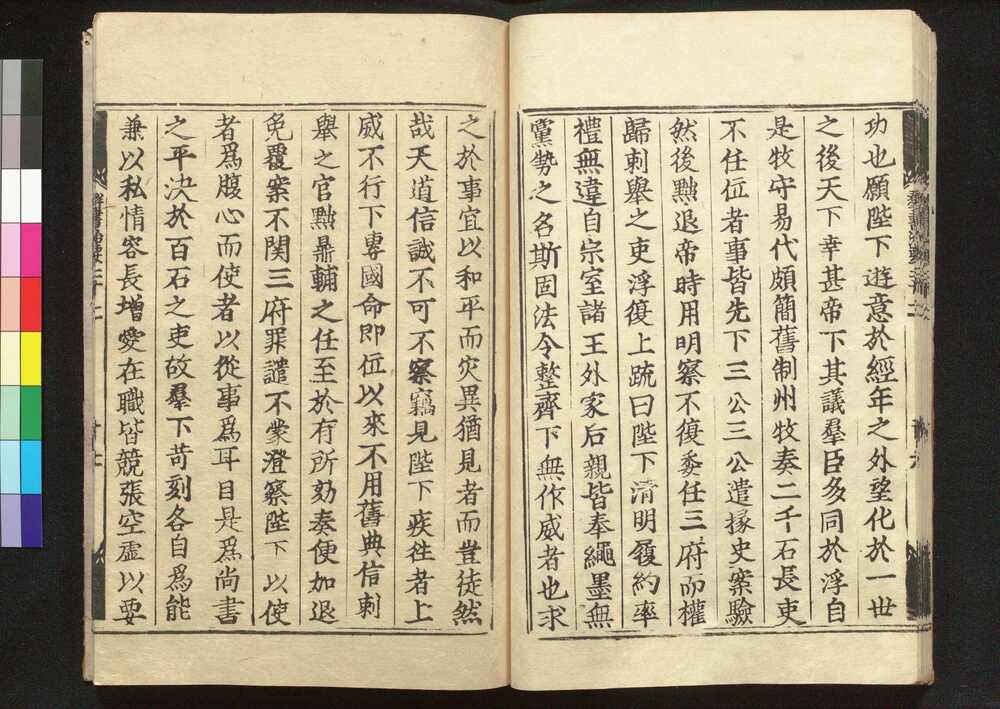 功也願陛下遊意於經年之外望化於一世
之後天下幸甚帝下其議羣臣多同於浮自
是牧守易代頗簡舊制州牧奏二千石長吏
不任位者事皆先下三公三公遣掾史案驗
然後黜退帝時用明察不復委任三府而權
歸刺舉之吏浮復上疏曰陛下清明履約率
禮無違自宗室諸王外家后親皆奉繩墨無
黨勢之名斯固法令整齊下無作威者也求
之於事宜以和平而灾異猶見者而豈徒然
哉天道信誠不可不察竊見陛下疾往者上
威不行下專國命即位以來不用舊典信刺
舉之官黜鼎輔之任至於有所劾奏便加退
免覆案不関三府罪譴不蒙澄察陛下以使
者爲腹心而使者以從事爲耳目是爲尚書
之平決於百石之吏故羣下苛刻各自爲能
兼以私情容長增愛在職皆競張空虛以要